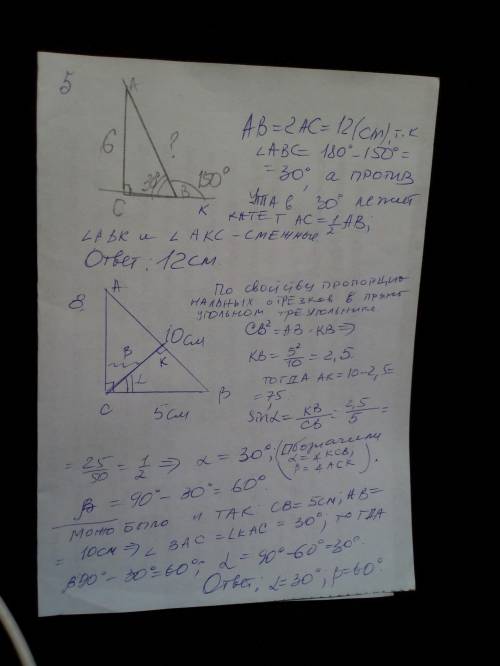 5
A
6
?
30°
150°
C
B
K
AB = 2AC = 12 (см), т.к
∠ABC = 180° - 150° =
= 30°, а против
угла в 30° лежит
катет AC = 1/2 AB;
∠ABK и ∠AKC - смежные
Ответ: 12 см.
8.
A
10 см
β
K
α
C
B
5 см
По свойству пропорцио
нальных отрезков в прямо
угольном треугольнике
CB² = AB · KB ⇒
KB = 5²/10 = 2,5.
тогда AK = 10 - 2,5 =
= 7,5
sinα = KB/CB = 2,5/5 =
= 25/50 = 1/2 ⇒ α = 30°; (Обозначили
α = ∠KCB,
β = ∠ACK).
β = 90° - 30° = 60°.
Можно было и так: CB = 5см, AB =
= 10см ⇒ ∠BAC = ∠KAC = 30°; тогда
β 90° - 30° = 60°; α = 90° - 60° = 30°.
Ответ: α = 30°; β = 60°.